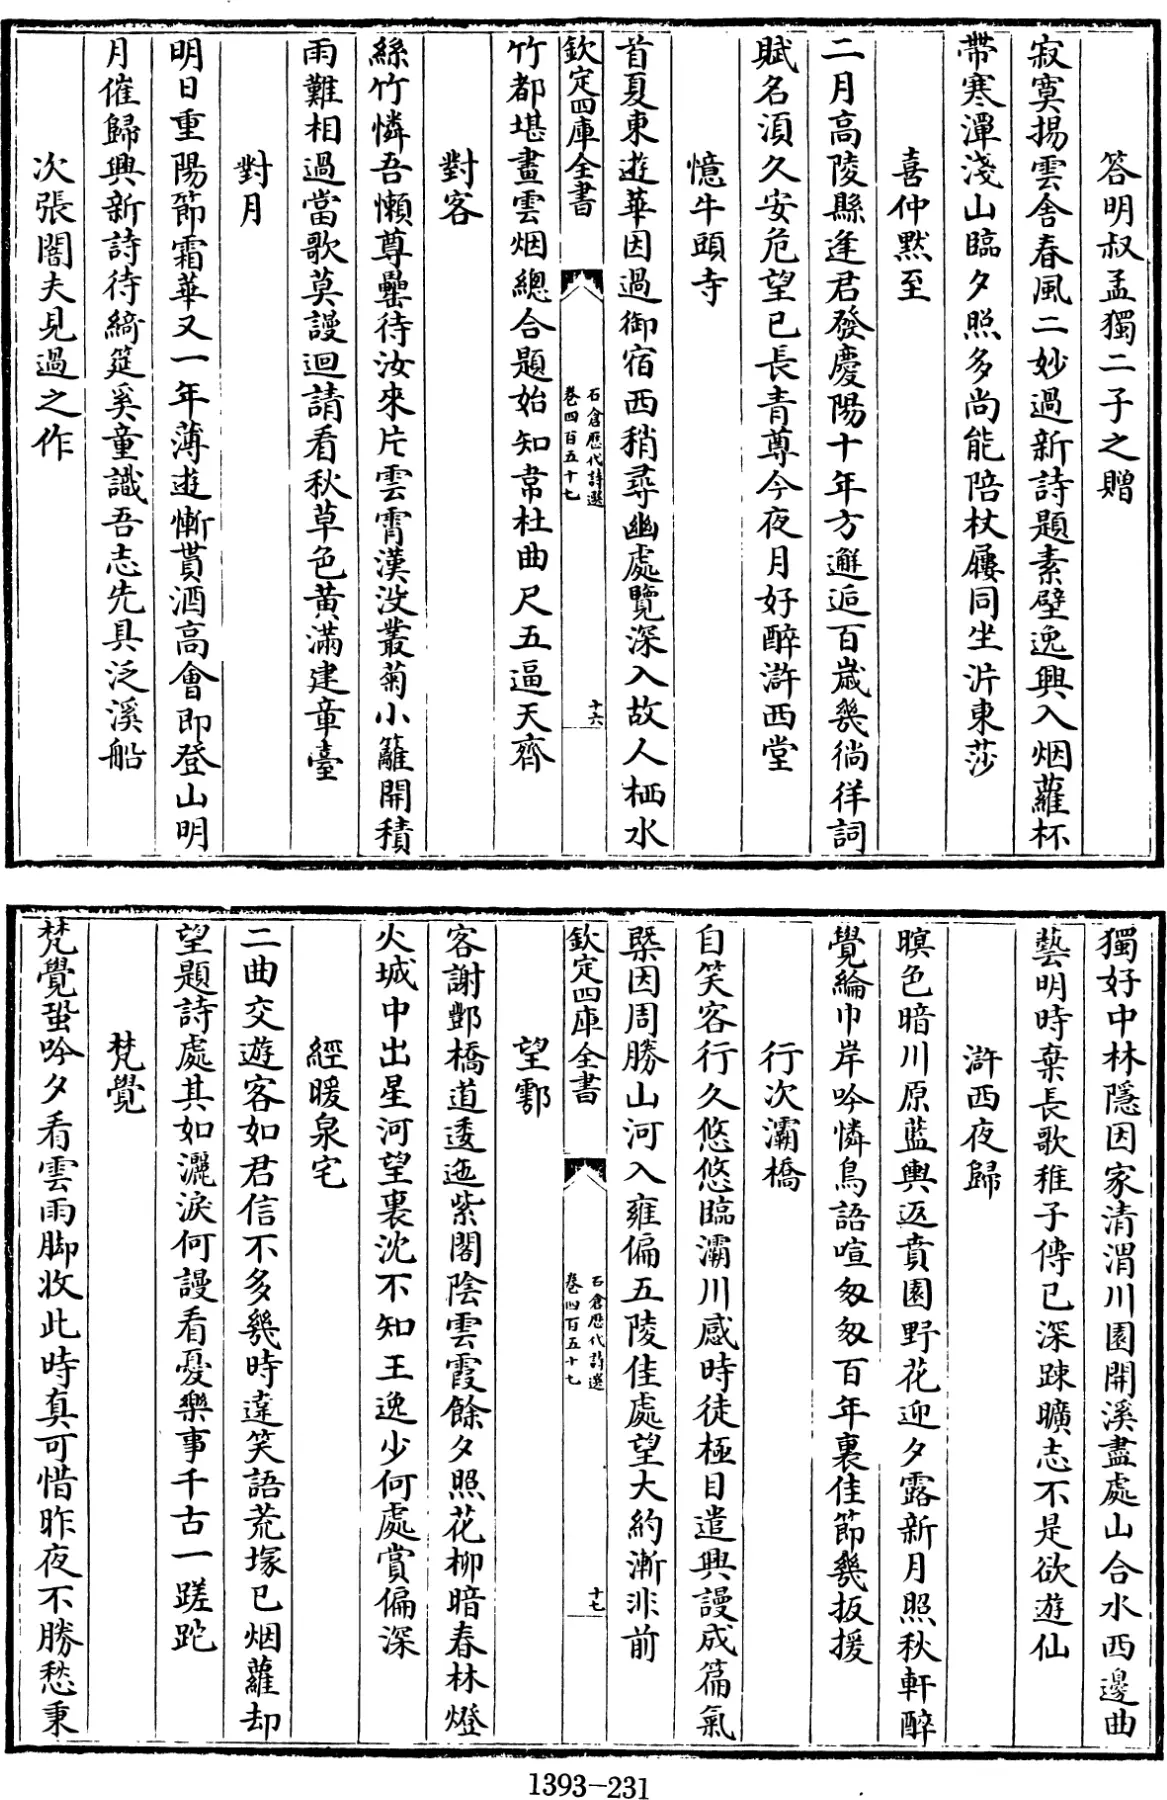 答明叔孟獨二子之贈
寂寞揚雲舍春風二妙過新詩題素壁逸興入烟蘿杯
帶寒潭淺山臨夕照多尚能陪杖屨同坐沜東莎
喜仲黙至
二月高陵縣逢君發慶陽十年方邂逅百歲幾徜徉詞
賦名湏久安危望已長青尊今夜月好醉滸西堂
憶牛頭寺
首夏東遊華因過御宿西稍尋幽處覽深入故人栖水
欽定四庫全書
石倉歷代詩選
卷四百五十七
十六
竹都堪畫雲烟總合題始知韋杜曲尺五逼天齊
對客
絲竹憐吾懶尊罍待汝來片雲霄漢没叢菊小籬開積
雨難相過當歌莫謾迴請看秋草色黄滿建章臺
對月
明日重陽節霜華又一年薄遊慚貰酒高會即登山明
月催歸興新詩待綺筵奚童識吾志先具泛溪船
次張閣夫見過之作
獨好中林隱因家清渭川園開溪盡處山合水西邊曲
藝明時棄長歌稚子傳已深踈曠志不是欲遊仙
滸西夜歸
暝色暗川原藍輿返賁園野花迎夕露新月照秋軒醉
覺綸巾岸吟憐鳥語喧匆匆百年裏佳節幾扳援
行次灞橋
自笑客行久悠悠臨灞川感時徒極目遣興謾成篇氣
槩因周勝山河入雍偏五陵佳處望大約漸非前
欽定四庫全書
石倉歷代詩選
卷四百五十七
十七
望鄠
客謝酆橋道逶迤紫閣陰雲霞餘夕照花柳暗春林燈
火城中出星河望裏沈不知王逸少何處賞偏深
經暖泉宅
二曲交遊客如君信不多幾時違笑語荒塚已烟蘿却
望題詩處其如灑淚何謾看憂樂事千古一蹉跎
梵覺
梵覺蛩吟夕看雲雨脚收此時真可惜昨夜不勝愁秉
1393-231